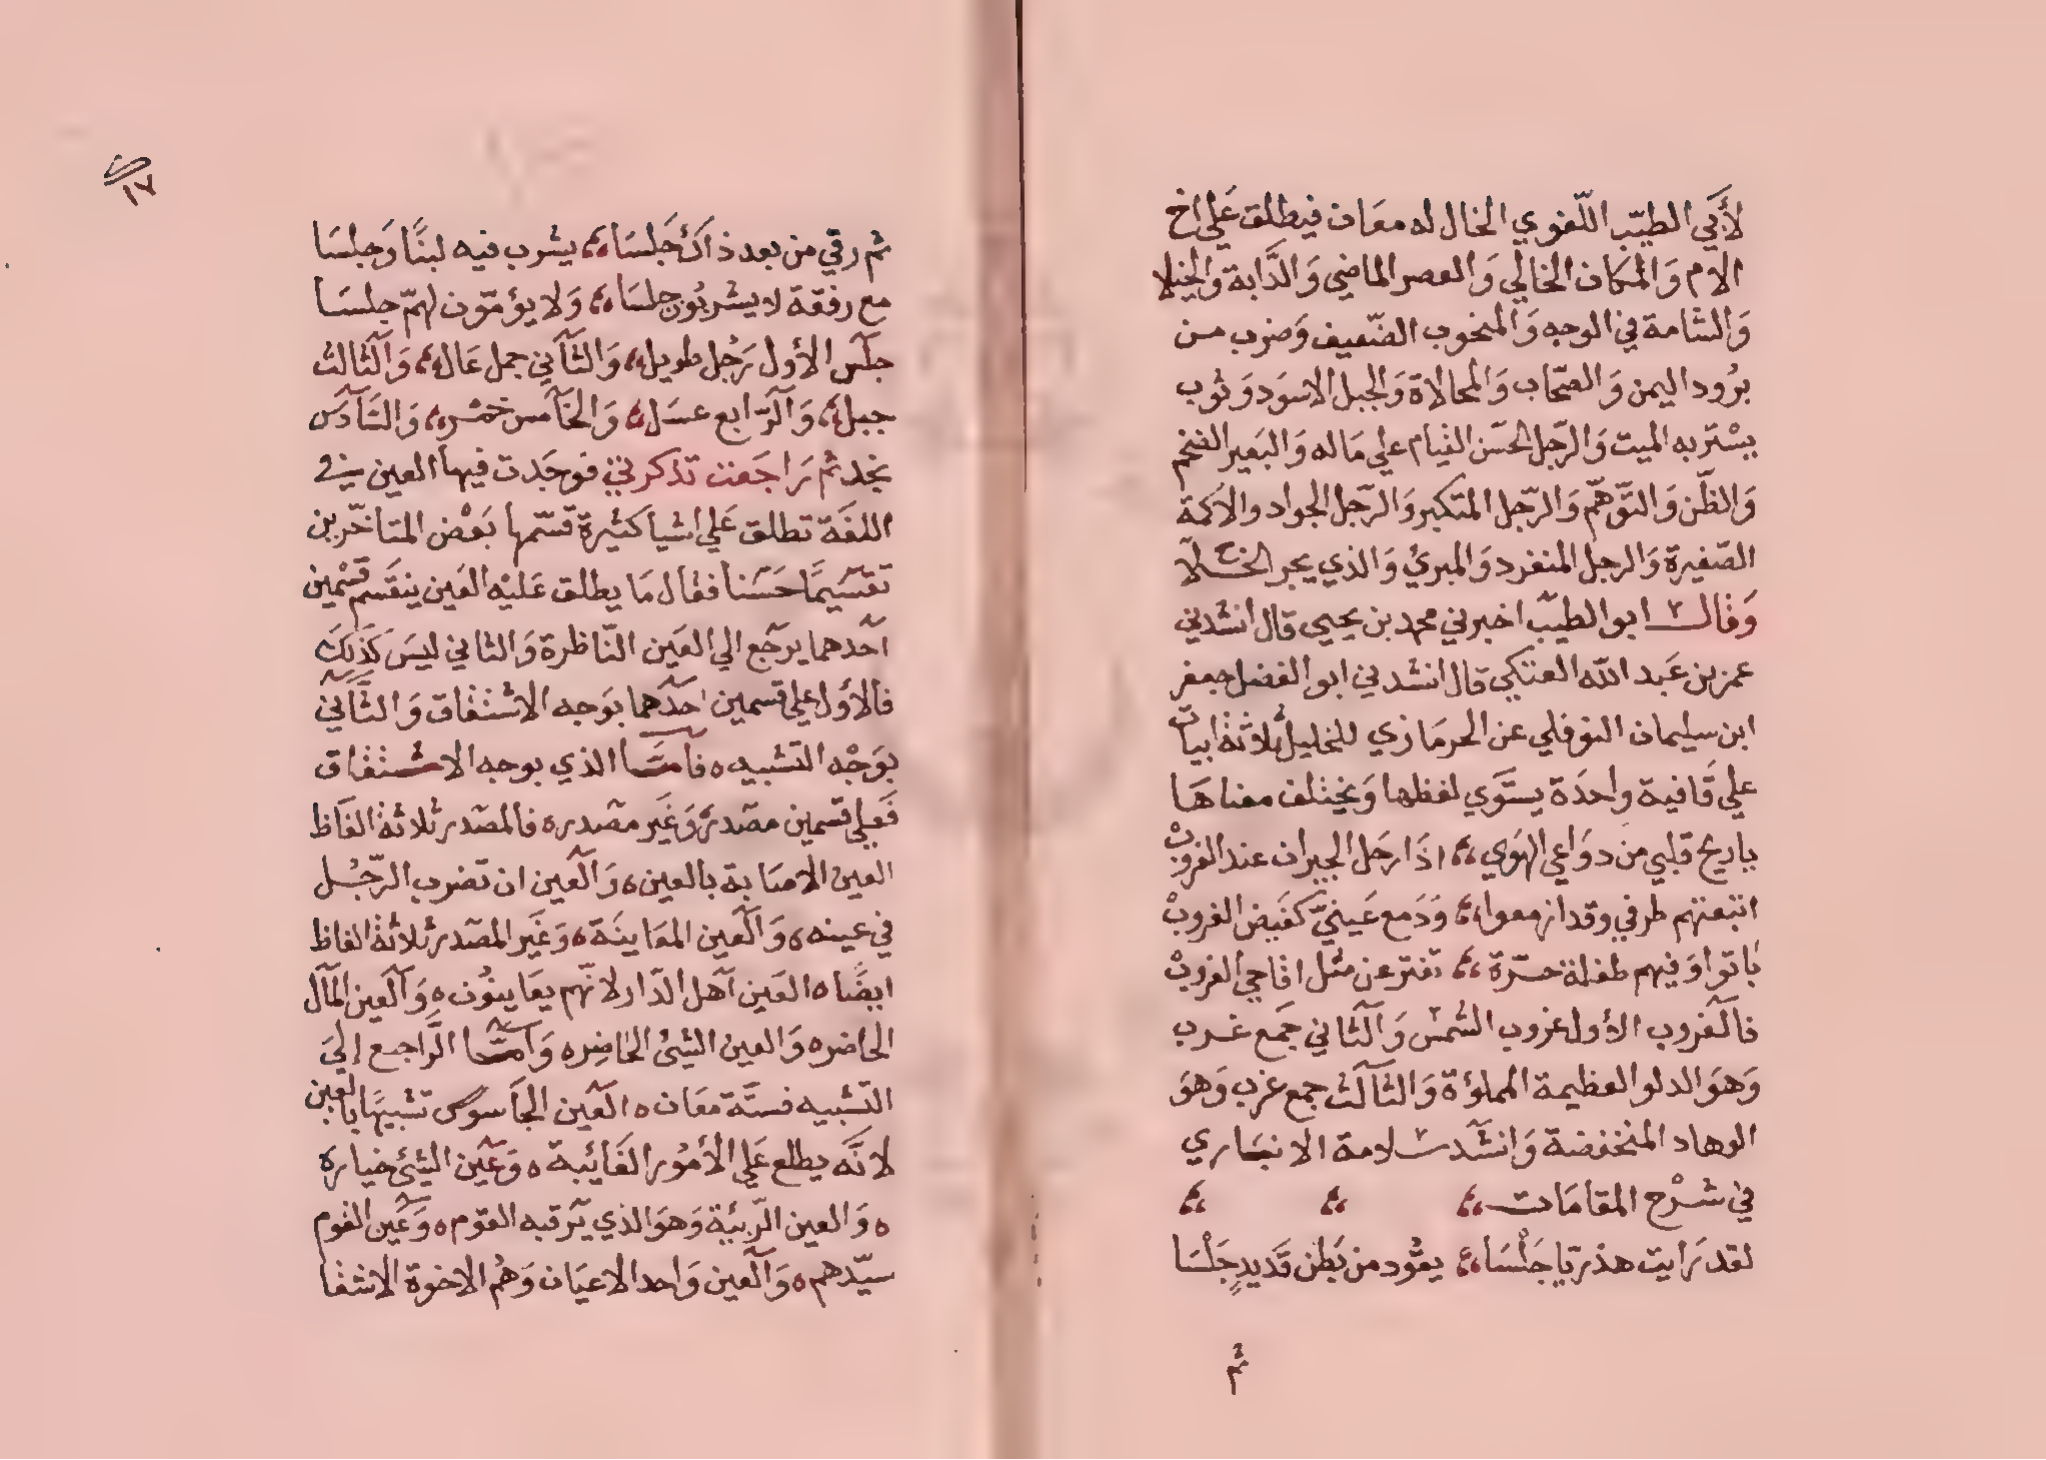 لأبي الطيّب اللّغوي الخال له معَان فيطلق عَلي اخ
الام وَالمكان الخالي وَالعصر الماضي وَالدَّابة وَالخيلا
وَالشامة في الوجه وَالمنخوب الضّعيف وَضرب من
برُود اليمن وَالصّحَاب وَالمخالاة وَالجبل الاسوَد وَثوب
يسْتر به الميت وَالرّجل الحسَن القيام علي مَاله وَالبَعير الضخم
وَالظّن وَالتوَّهمّ وَالرّجل المتكبر وَالرّجل الجواد والاكمَة
الصّغيرة وَالرجل المنفرد وَالمبريُ وَالذي يجر الخــلا
وَقال ابو الطيّب اخبرني محمد بن يحيي قال انشدني
عمر بن عَبد اللّه العتكي قال انشدني ابو الفضل جعفر
ابن سليمان النوفلي عن الحرمَازي للخليل ثلاثة ابيات
علي قَافية وَاحدَة يستَوي لفظها وَيختلف معناهَا
ياريح قلبي من دوَاعي الهوَي ،، اذَا رحَل الجيران عند الغروبْ
اتبعتهم طرفي وقد ازمعوا ،، وَدَمع عَينيّ كفَيض الغروبْ
باتوا وَفيهم طفلة حرّة ،، تفتر عن مثل اقاحي الغروبْ
فالغروب الأول غروب الشمس وَالثاني جمَع غـرب
وَهوَ الدلو العظيمة المملوَّة وَالثالث جمع غرب وَهوَ
الوهاد المنخفضة وَانشَد سلامة الانبَاري
في شرْح المقامَات ،، ،، ،،
لقد رَأيت هذريا جَلْسَا ،، يقُود من بَطن قَديدٍ جَلْسَا
ثم
١٧
ثم رقي من بعد ذاكَ جَلسَا ،، يشرب فيه لبنًا وَجلسَا
مع رفقة لا يشربُون جلسَا ،، وَلا يؤمّون لهمّ جلسَا
جلَس الأول رَجُل طويل ، وَالثاني جمل عَال ، وَالثالث
جبل ، وَالرّابع عسَل ، وَالخامس خمْر ، وَالسَّادس
نجد ثم رَاجَعت تذكرتي فوجَدت فيها العين في
اللغَة تطلق عَلي اشيا كثيرة قسّمها بَعْض المتاخّرين
تقسَيمًا حَسَنا فقال مَا يطلق عَليْه العَين ينقَسم قسْمين
احدهما يرجَع الي العَين النّاظرة وَالثاني ليسَ كَذَلِكَ
فالاوَل علي قسمين احدَهما بوَجه الاشتقاق وَالثَّاني
بوَجْه التشبيه ه فامّا الذي بوجه الاشتقاق
فعَلي قسمين مصْدر وَغَير مصْدر ه فالمصْدر ثلاثة الفَاظ
العين الاصَابة بالعين ه وَالَعين ان تضرب الرّجُل
في عينه ه وَالَعين المعَاينَة ه وَغَير المصْدر ثلاثة الفاظ
ايضًا ه العَين اهل الدّار لانّهم يعَاينُون ه وَالَعين المَال
الحَاضر ه وَالعين الشئ الحَاضِر ه وَامّا الرَّاجع إليَ
التشبيه فستَّة معَان ه العَين الجَاسوس تشبيهًا بالعَين
لانَّه يطلع عَلي الأمُور الغَائبة ه وَعَين الشئ خياره
ه وَالعين الرّبيئة وَهوَ الذي يَرقبه القوم ه وَعَين القوم
سيّدهم ه وَالَعين وَاحد الاعيَان وَهُم الاخوة الاشقا